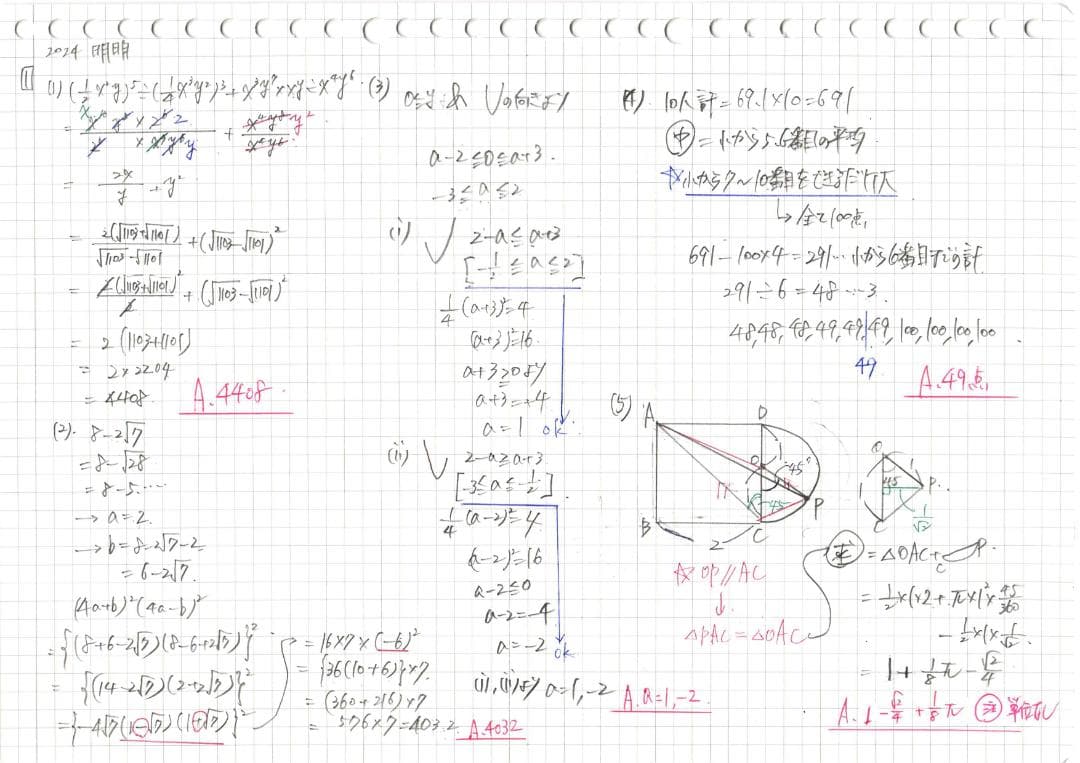 2024 明明
1
(1) (1/2 x²y)⁵ ÷ (1/4 x³y²)³ + x³y⁷ × xy ÷ x⁴y⁶
= 2x/y + y²
= 2(√1103+√1101)/(√1103-√1101) + (√1103-√1101)²
= 2(√1103+√1101)²/2 + (√1103-√1101)²
= 2(1103+1101)
= 2×2204
= 4408
A.4408
(2). 8-2√7
=8-√28
=8-5.…
→ a=2.
→ b=8-2√7-2
=6-2√7.
(4a+b)²(4a-b)²
={(8+6-2√7)(8-6+2√7)}²
={(14-2√7)(2+2√7)}²
={-4√7(1-√7)(1+√7)}²
=16×7×(-6)²
={36(10+6)}×7.
=(360+216)×7
=576×7=4032.
A.4032
(3)
a-2≦0≦a+3.
-3≦a≦2
(i)
2-a≦a+3
[-1/2≦a≦2]
1/4(a+3)²=4
(a+3)²=16
a+3≧0より
a+3=+4
a=1 ok
(ii)
2-a≧a+3
[-3≦a≦-1/2].
1/4(a-2)²=4
(a-2)²=16
a-2≦0
a-2=-4
a=-2
ok
(i),(ii)より a=1,-2
A.a=1,-2
(4) 10人計=69.1×10=691
中=小から5,6番目の平均
☆小から7〜10番目をできるだけ大
↳全て100点
691-100×4=291…小から6番目までの計
291÷6=48…3
48,48,48,49,49,49,100,100,100,100
49
A.49点
(5)
A D
O 45°
P
45
B 2 C
☆OP//AC
↓
△PAC=△OAC
O 1
45 P
1/√2
C
求=△OAC+
C P
=1/2×1×2+π×1²×45/360
-1/2×1×1/√2.
=1+1/8π-√2/4
A.1-√2/4+1/8π 注 単位なし